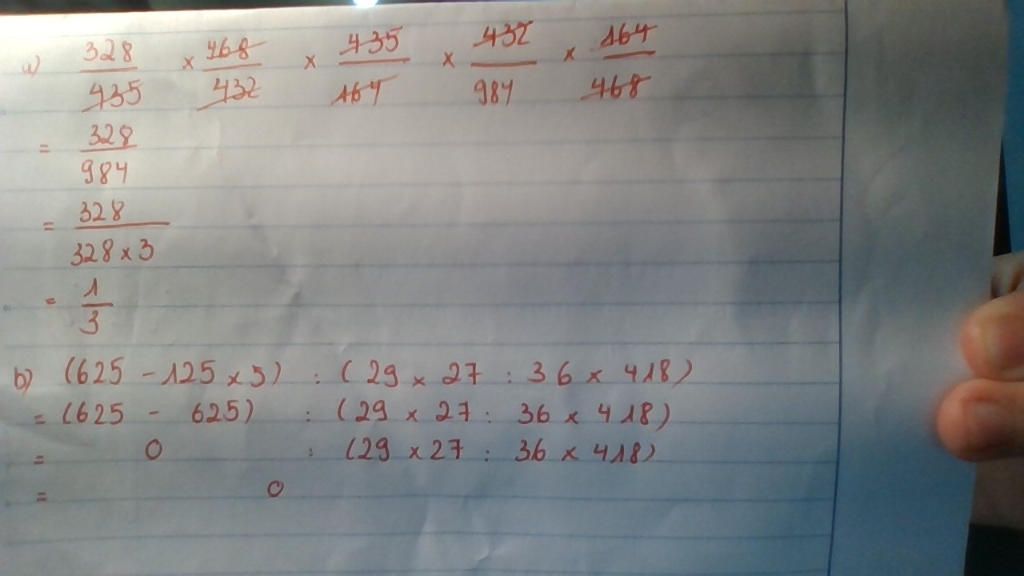 a) 328/435 × 468/432 × 435/164 × 432/984 × 164/468
= 328/984
= 328/328×3
= 1/3
b) (625 - 125 × 5) : (29 × 27 : 36 × 418)
= (625 - 625) : (29 × 27 : 36 × 418)
= 0 : (29 × 27 : 36 × 418)
= 0